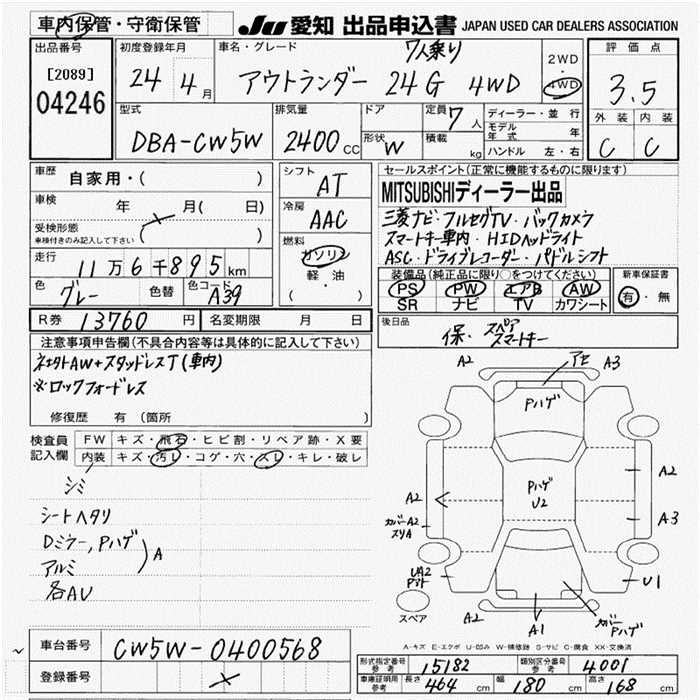 車内保管・守衛保管
JU 愛知 出品申込書 JAPAN USED CAR DEALERS ASSOCIATION
出品番号
[2089]
04246
初度登録年月
24 4月
車名・グレード
7人乗り
アウトランダー 24G 4WD
2WD
・
4WD
評価点
3.5
外装 内装
C C
型式
DBA-CW5W
排気量
2400cc
ドア
形状 W
定員 7人
積載 kg
ディーラー・並行
モデル年式 年
ハンドル 左・右
車歴
自家用・( )
車検 年 月( 日)
受検形態
車検付きのみ記入して下さい ( )
走行
11万6千895km
色
グレー
色替
色コード
A39
シフト
AT
冷房
AAC
燃料
ガソリン
軽・油
( )
セールスポイント(正常に機能するものに限ります)
MITSUBISHIディーラー出品
三菱ナビ・フルセグTV・バックカメラ
スマートキー車内・HIDヘッドライト
ASC・ドライブレコーダー・パドルシフト
装備品(純正品に限り○をつけてください)
PS PW エアB AW
SR ナビ TV カワシート
新車保証書
有・無
R券 13760円
名変期限 月 日
後日品
保・スペア
スマートキー
注意事項申告欄(不具合内容等は具体的に記入して下さい)
ネェクトAW+スタッドレスT(車内)
※ロックフォードレス
修復歴 有(箇所 )
検査員
記入欄
FW キズ・飛石・ヒビ割・リペア跡・X要
内装 キズ・汚レ・コゲ・穴・スレ・キレ・破レ
シミ
シートヘタリ
Dミラー,Pハゲ
アルミ
A
各AU
A2 アセ A3
Pハゲ
A2
A2
Pハゲ
U2
カバーA2
スリA
A3
UA2
U1
スペア
A2
A1
カバー
Pハゲ
A-キズ E-エクボ U-凹み W-補修跡 S-サビ C-腐食 XX-交換済
車台番号 CW5W-0400568
登録番号
形式指定番号
参考
15182
類別区分番号
参考
4001
車庫証明用
参考
長さ 464cm
幅 180cm
高さ 168cm